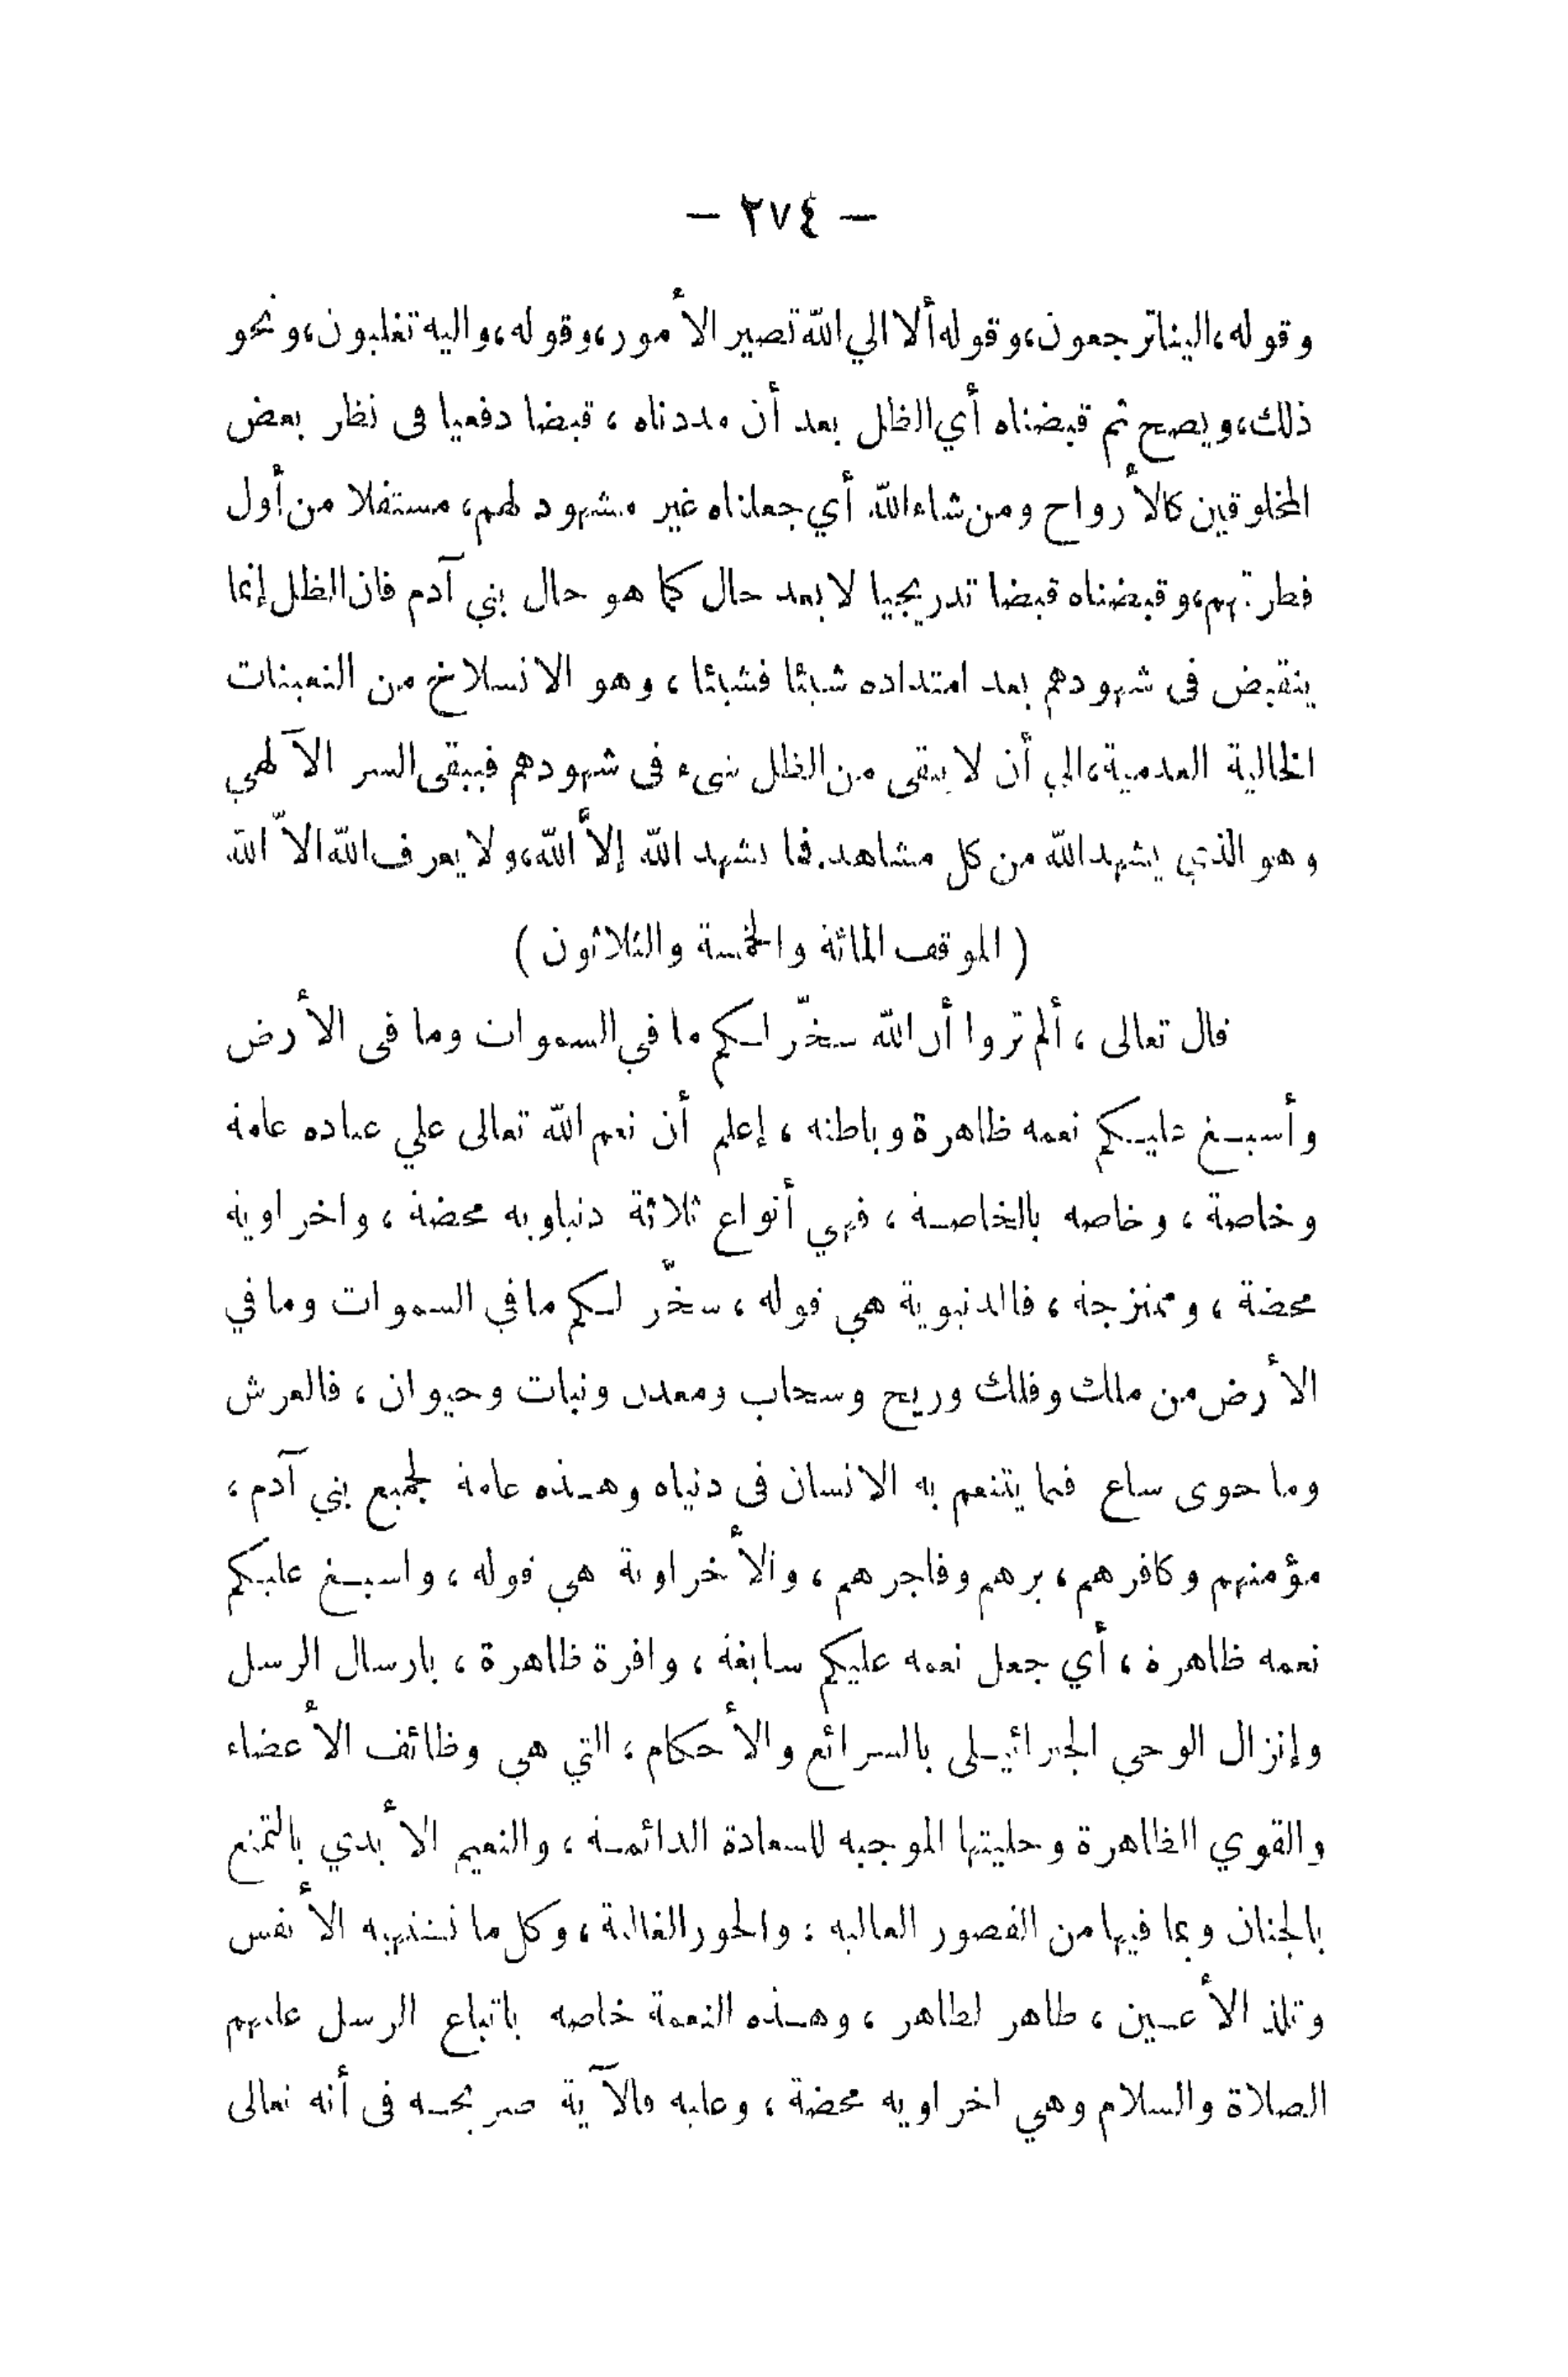 — ٢٧٤ —
وقوله، الينا ترجعون، وقوله ألا الي الله تصير الأمور، وقوله، واليه تغلبون، ونحو
ذلك، ويصح ثم قبضناه أي الظل بعد أن مددناه ، قبضا دفعيا فى نظر بعض
المخلوقين كالأرواح ومن شاء الله أي جعلناه غير مشهود لهم، مستفلا من أول
فطرتهم، وقبضناه قبضا تدريجيا لا بعد حال كما هو حال بني آدم فان الظل إنما
ينقبض فى شهودهم بعد امتداده شيئا فشيئا ، وهو الانسلاخ من التعينات
الخالية العدمية، الي أن لا يبقى من الظل شىء فى شهودهم فيبقى السر الآلهي
وهو الذي يشهد الله من كل مشاهد. فما شهد الله إلاّ الله، ولا يعرف الله الاّ الله
( الموقف المائة والخمسة والثلاثون )
قال تعالى ، ألم تروا أن الله سخّر لكم ما في السموات وما فى الأرض
وأسبغ عليكم نعمه ظاهرة وباطنه ، إعلم أن نعم الله تعالى علي عباده عامة
وخاصة ، وخاصه بالخاصة ، فهي أنواع ثلاثة دنياويه محضة ، واخراوية
محضة ، وممتزجة ، فالدنيوية هي قوله ، سخّر لكم ما في السموات وما في
الأرض من ملك وفلك وريح وسحاب ومعدن ونبات وحيوان ، فالعرش
وما حوى ساع فيما يتنعم به الانسان فى دنياه وهذه عامة لجميع بني آدم ،
مؤمنهم وكافرهم ، برهم وفاجرهم ، والأخراوية هي قوله ، واسبغ عليكم
نعمه ظاهرة ، أي جعل نعمه عليكم سابغة ، وافرة ظاهرة ، بارسال الرسل
وإنزال الوحي الجبرائيلى بالشرائع والأحكام ، التي هي وظائف الأعضاء
والقوي الظاهرة وحليتها الموجبه للسعادة الدائمة ، والنعيم الأبدي بالتمتع
بالجنان وبما فيها من القصور العاليه ، والحور الغالية ، وكل ما تشتهيه الأنفس
وتلذ الأعين ، ظاهر لظاهر ، وهذه النعمة خاصه باتباع الرسل عليهم
الصلاة والسلام وهي اخراويه محضة ، وعليه فالآية صريحه فى أنه تعالى